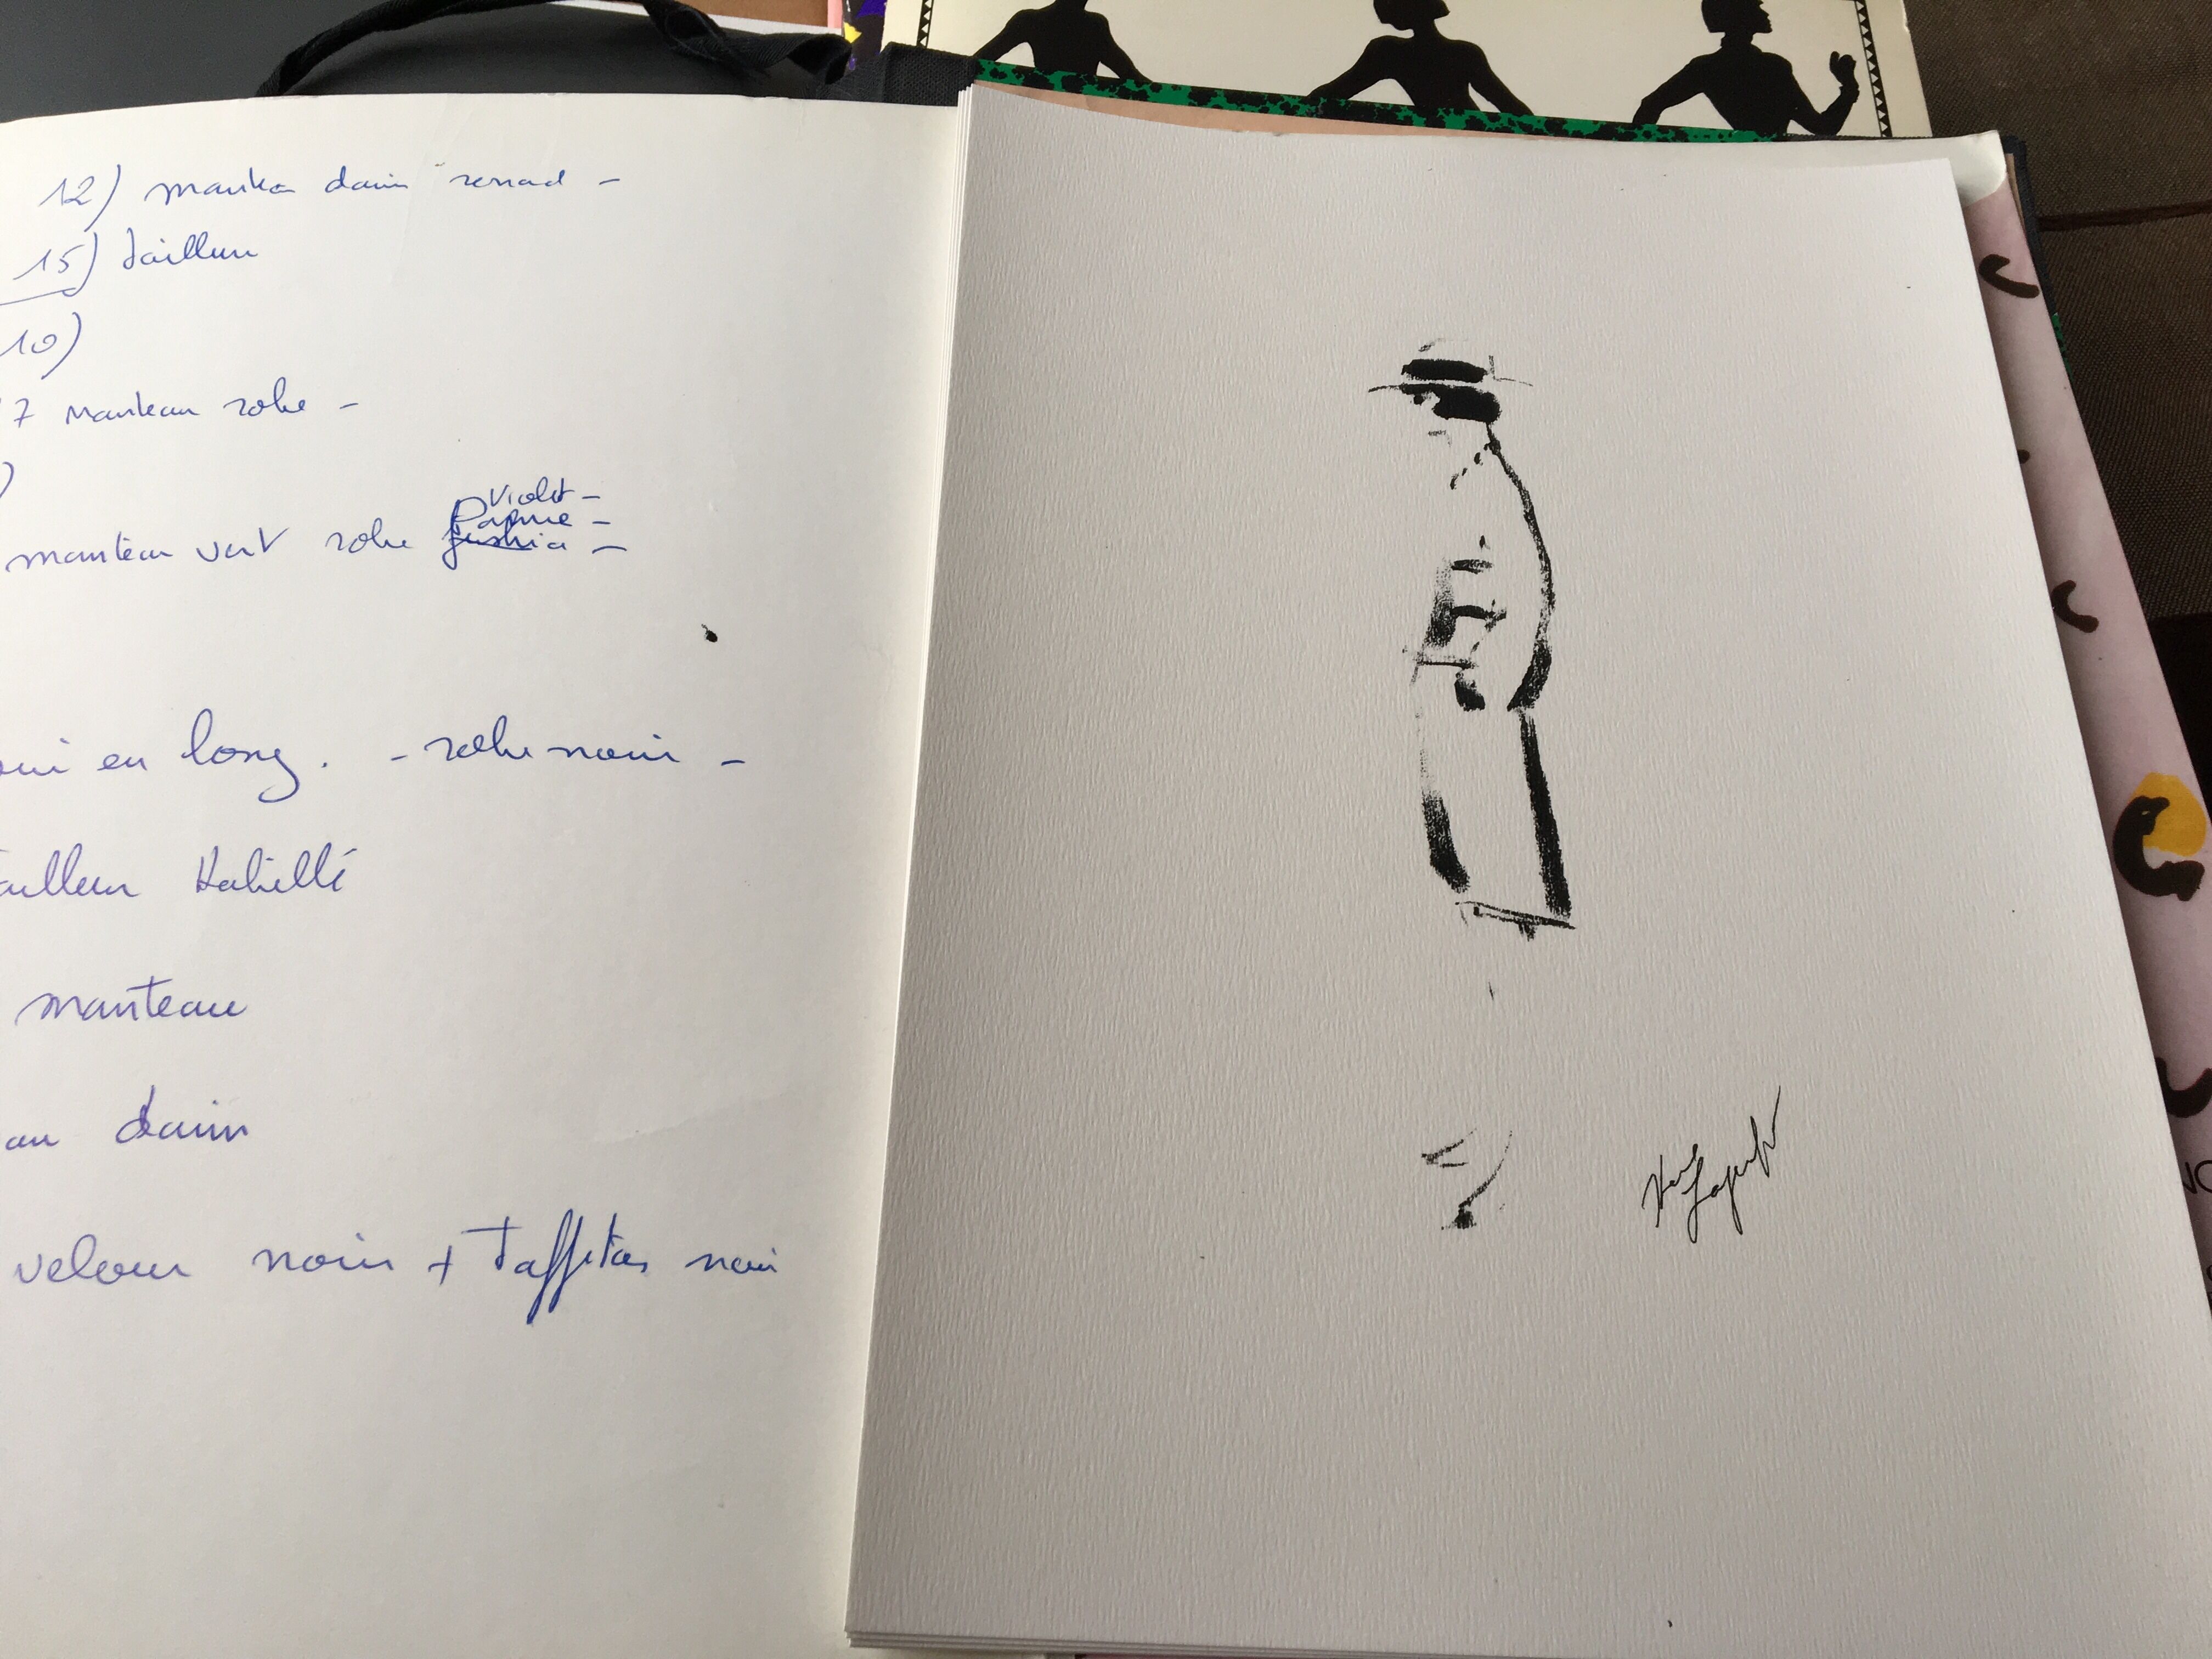 12) manteau daim renard –
15) Tailleur
10)
7 manteau robe –
)
Violet –
Parme –
manteau vert robe fushia –
en long. - robe noir –
Habillé
manteau
daim
velour noir + Taffetas noir